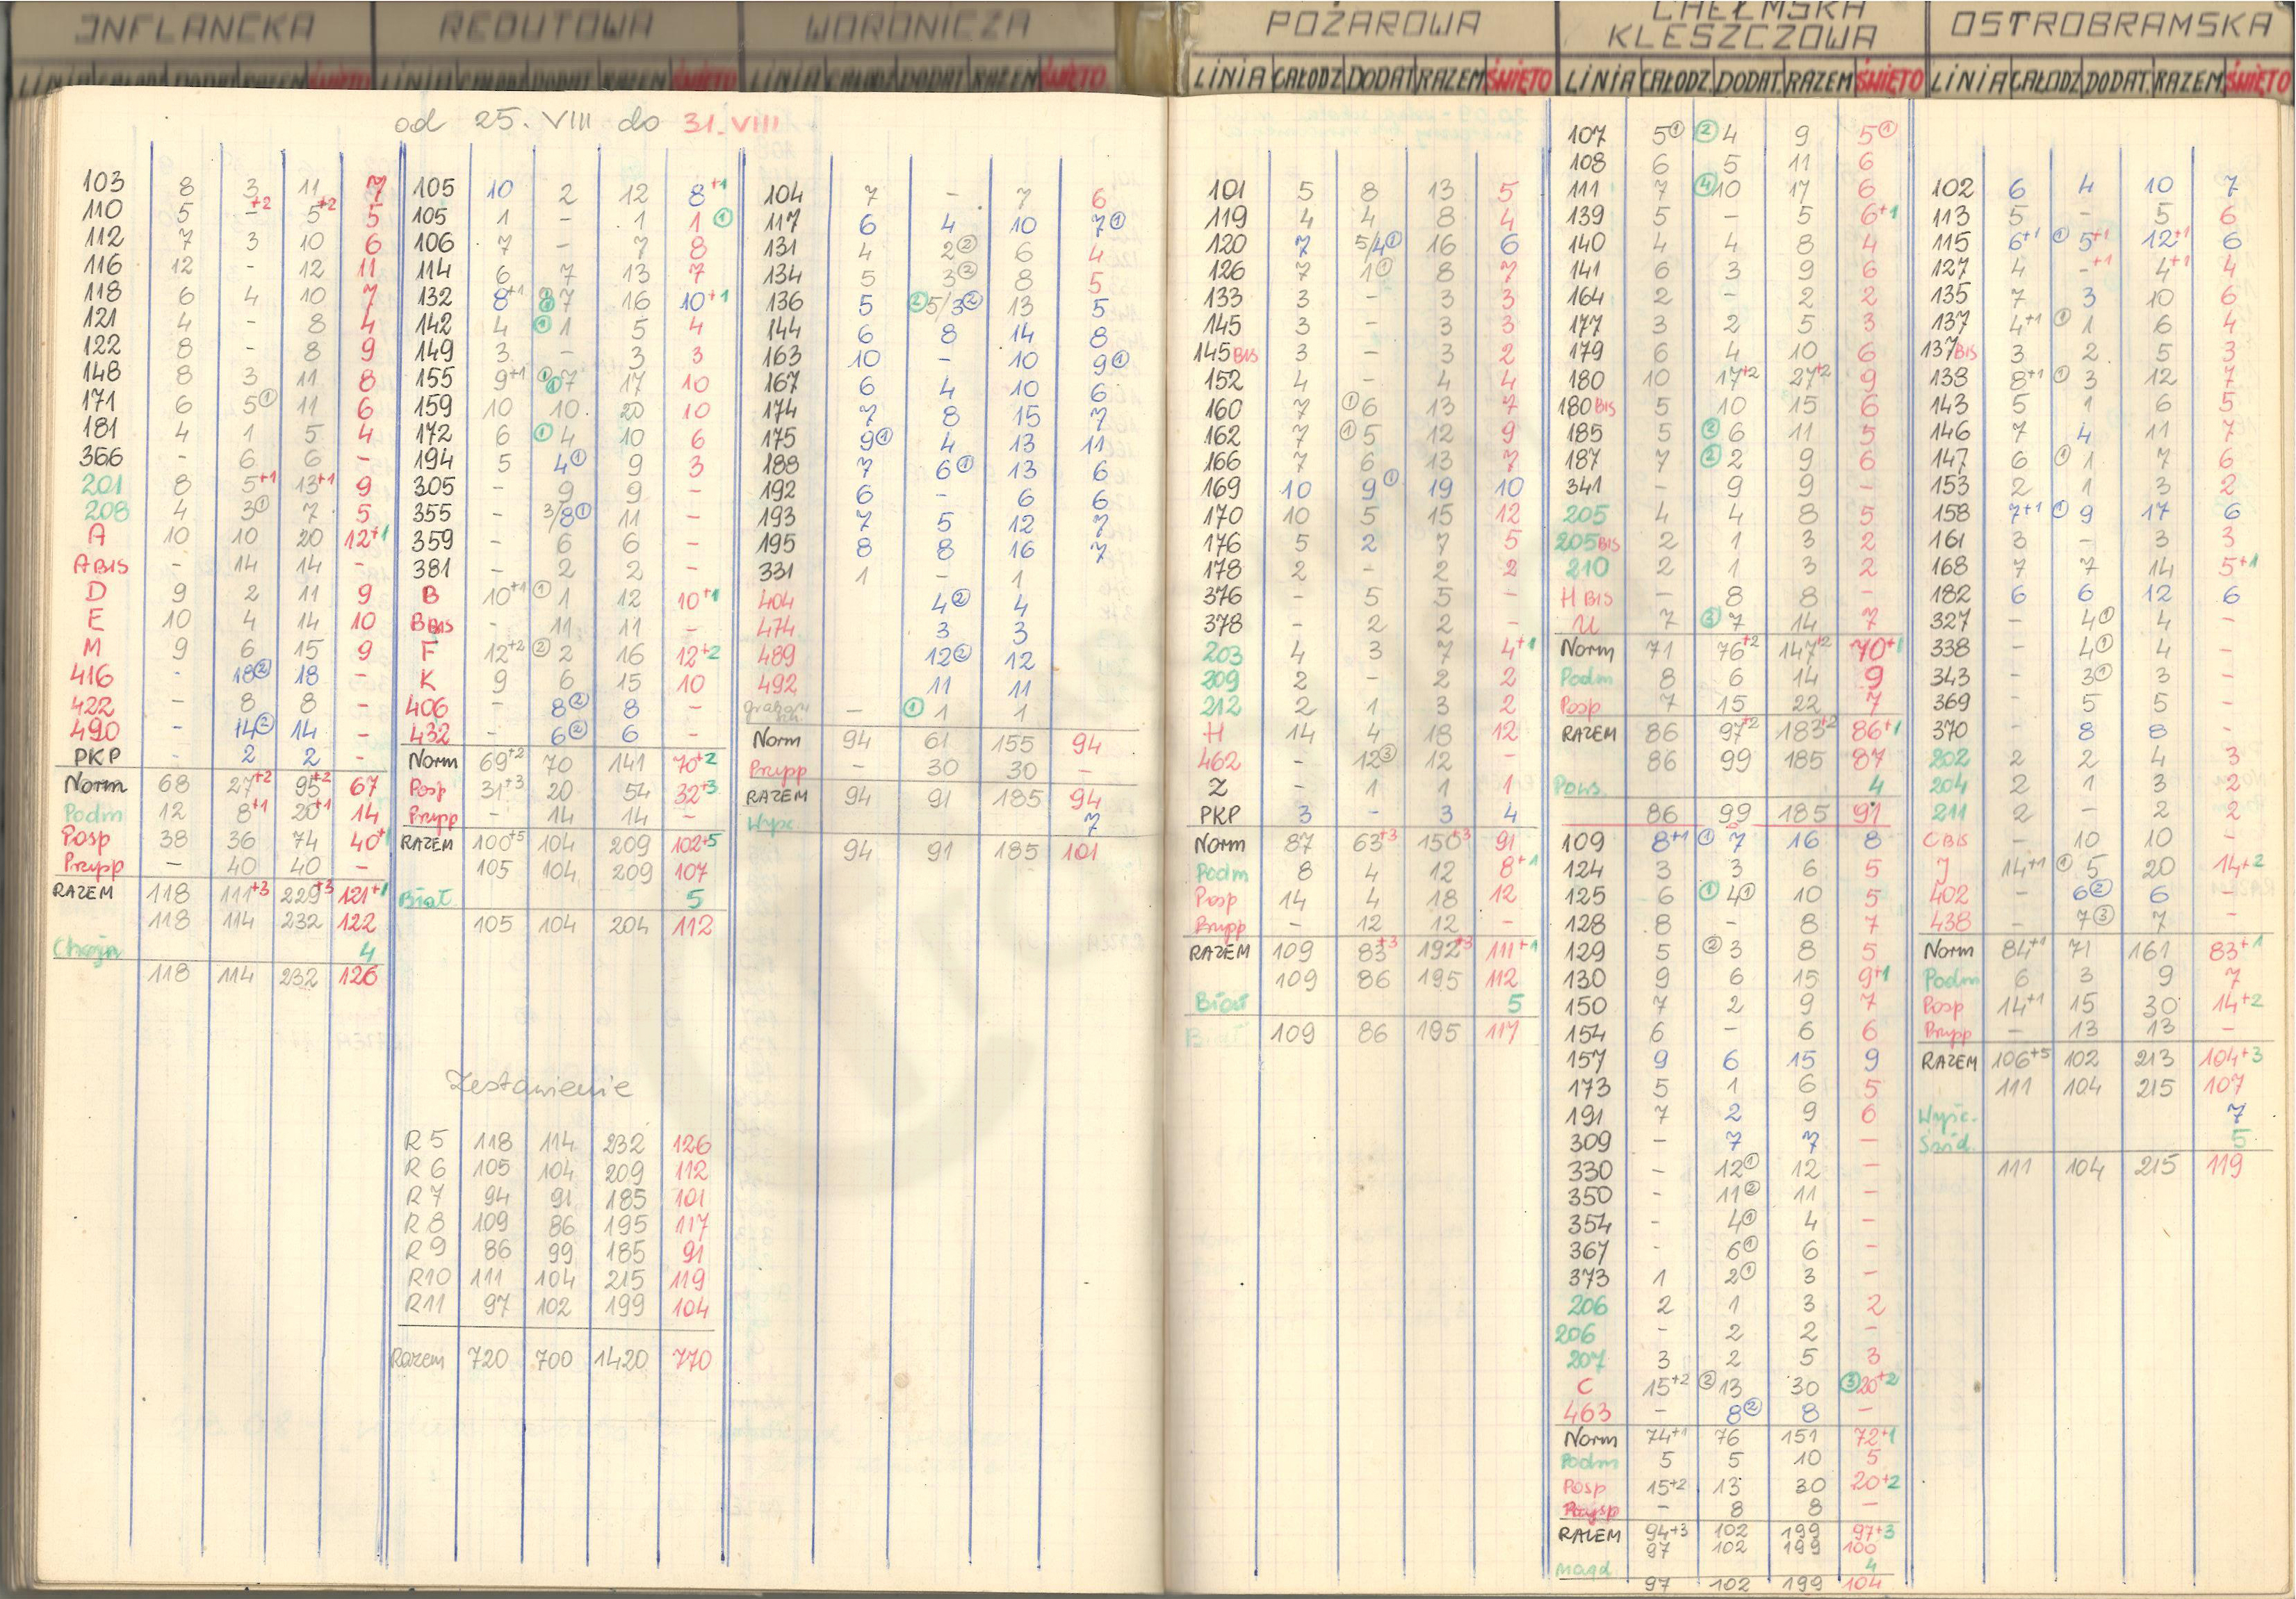 INFLANCKA
LINIA CAŁODZ DODAT RAZEM ŚWIĘTO
103 8 3 11 7
110 5 -+2 5+2 5
112 7 3 10 6
116 12 - 12 11
118 6 4 10 7
121 4 - 8 4
122 8 - 8 9
148 8 3 11 8
171 6 5① 11 6
181 4 1 5 4
366 - 6 6 -
201 8 5+1 13+1 9
208 4 3① 7 5
A 10 10 20 12+1
A BIS - 14 14 -
D 9 2 11 9
E 10 4 14 10
M 9 6 15 9
416 - 18② 18 -
422 - 8 8 -
490 - 14② 14 -
PKP - 2 2 -
Norm 68 27+2 95+2 67
Podm 12 8+1 20+1 14
Posp 38 36 74 40+1
Przysp - 40 40 -
RAZEM 118 111+3 229+3 121+1
118 114 232 122
4
118 114 232 126
REDUTOWA
LINIA CAŁODZ DODAT RAZEM ŚWIĘTO
od 25. VIII do 31. VIII
105 10 2 12 8+1
105 1 - 1 1 ①
106 7 - 7 8
114 6 7 13 7
132 8+1 7 16 10+1
142 4 ① 1 5 4
149 3 - 3 3
155 9+1 7 17 10
159 10 10 20 10
172 6 ① 4 10 6
194 5 4① 9 3
305 - 9 9 -
355 - 3/8① 11 -
359 - 6 6 -
381 - 2 2 -
B 10+1 ① 1 12 10+1
B BIS - 11 11 -
F 12+2 ② 2 16 12+2
K 9 6 15 10
406 - 8② 8 -
432 - 6② 6 -
Norm 69+2 70 141 70+2
Posp 31+3 20 54 32+3
Przysp - 14 14 -
RAZEM 100+5 104 209 102+5
105 104 209 107
Biał. 5
105 104 204 112
Zestawienie
R 5 118 114 232 126
R 6 105 104 209 112
R 7 94 91 185 101
R 8 109 86 195 117
R 9 86 99 185 91
R10 111 104 215 119
R11 97 102 199 104
Razem 720 700 1420 770
WORONICZA
LINIA CAŁODZ DODAT RAZEM ŚWIĘTO
104 7 - 7 6
117 6 4 10 7①
131 4 2② 6 4
134 5 3② 8 5
136 5 ②5/3② 13 5
144 6 8 14 8
163 10 - 10 9①
167 6 4 10 6
174 7 8 15 7
175 9① 4 13 11
188 7 6① 13 6
192 6 - 6 6
193 7 5 12 7
195 8 8 16 7
331 1 - 1
404 4② 4
474 3 3
489 12② 12
492 11 11
- ① 1 1
Norm 94 61 155 94
Przysp - 30 30 -
RAZEM 94 91 185 94
Wypc 7
94 91 185 101
POŻAROWA
LINIA CAŁODZ DODAT RAZEM ŚWIĘTO
101 5 8 13 5
119 4 4 8 4
120 7 5/4① 16 6
126 7 1① 8 7
133 3 - 3 3
145 3 - 3 3
145 BIS 3 - 3 2
152 4 - 4 4
160 7 ①6 13 7
162 7 ①5 12 9
166 7 6 13 7
169 10 9① 19 10
170 10 5 15 12
176 5 2 7 5
178 2 - 2 2
376 - 5 5 -
378 - 2 2 -
203 4 3 7 4+1
209 2 - 2 2
212 2 1 3 2
H 14 4 18 12
462 - 12③ 12 -
Z - 1 1 1
PKP 3 - 3 4
Norm 87 63+3 150+3 91
Podm 8 4 12 8+1
Posp 14 4 18 12
Przysp - 12 12 -
RAZEM 109 83+3 192+3 111+1
109 86 195 112
5
109 86 195 117
CHEŁMSKA
KLESZCZOWA
LINIA CAŁODZ. DODAT. RAZEM ŚWIĘTO
107 5① ② 4 9 5①
108 6 5 11 6
111 7 ④10 17 6
139 5 - 5 6+1
140 4 4 8 4
141 6 3 9 6
164 2 - 2 2
177 3 2 5 3
179 6 4 10 6
180 10 17+2 27+2 9
180 BIS 5 10 15 6
185 5 ② 6 11 5
187 7 ② 2 9 6
341 - 9 9 -
205 4 4 8 5
205 BIS 2 1 3 2
210 2 1 3 2
H BIS - 8 8 -
U 7 ③ 7 14 7
Norm 71 76+2 147+2 70+1
Podm 8 6 14 9
Posp 7 15 22 7
RAZEM 86 97+2 183+2 86+1
86 99 185 87
Pows. 4
86 99 185 91
109 8+1 ① 7 16 8
124 3 3 6 5
125 6 ① 4① 10 5
128 8 - 8 7
129 5 ②3 8 5
130 9 6 15 9+1
150 7 2 9 7
154 6 - 6 6
157 9 6 15 9
173 5 1 6 5
191 7 2 9 6
309 - 7 7 -
330 - 12① 12 -
350 - 11② 11 -
354 - 4① 4 -
367 - 6① 6 -
373 1 2① 3 -
206 2 1 3 2
206 - 2 2 -
207 3 2 5 3
C 15+2 ②13 30 ③20+2
463 - 8② 8 -
Norm 74+1 76 151 72+1
Podm 5 5 10 5
Posp 15+2 13 30 20+2
Przysp - 8 8 -
RAZEM 94+3 102 199 97+3
97 102 199 100
Magd 4
97 102 199 104
OSTROBRAMSKA
LINIA CAŁODZ DODAT. RAZEM ŚWIĘTO
102 6 4 10 7
113 5 - 5 6
115 6+1 ① 5+1 12+1 6
127 4 -+1 4+1 4
135 7 3 10 6
137 4+1 ① 1 6 4
137 BIS 3 2 5 3
138 8+1 ① 3 12 7
143 5 1 6 5
146 7 4 11 7
147 6 ① 1 7 6
153 2 1 3 2
158 7+1 ① 9 17 6
161 3 - 3 3
168 7 7 14 5+1
182 6 6 12 6
327 - 4① 4 -
338 - 4① 4 -
343 - 3① 3 -
369 - 5 5 -
370 - 8 8 -
202 2 2 4 3
204 2 1 3 2
211 2 - 2 2
C BIS - 10 10 -
J 14+1 ① 5 20 14+2
402 - 6② 6 -
438 - 7③ 7 -
Norm 84+1 71 161 83+1
Podm 6 3 9 7
Posp 14+1 15 30 14+2
Przysp - 13 13 -
RAZEM 106+5 102 213 104+3
111 104 215 107
Wyśc. 7
Śród. 5
111 104 215 119